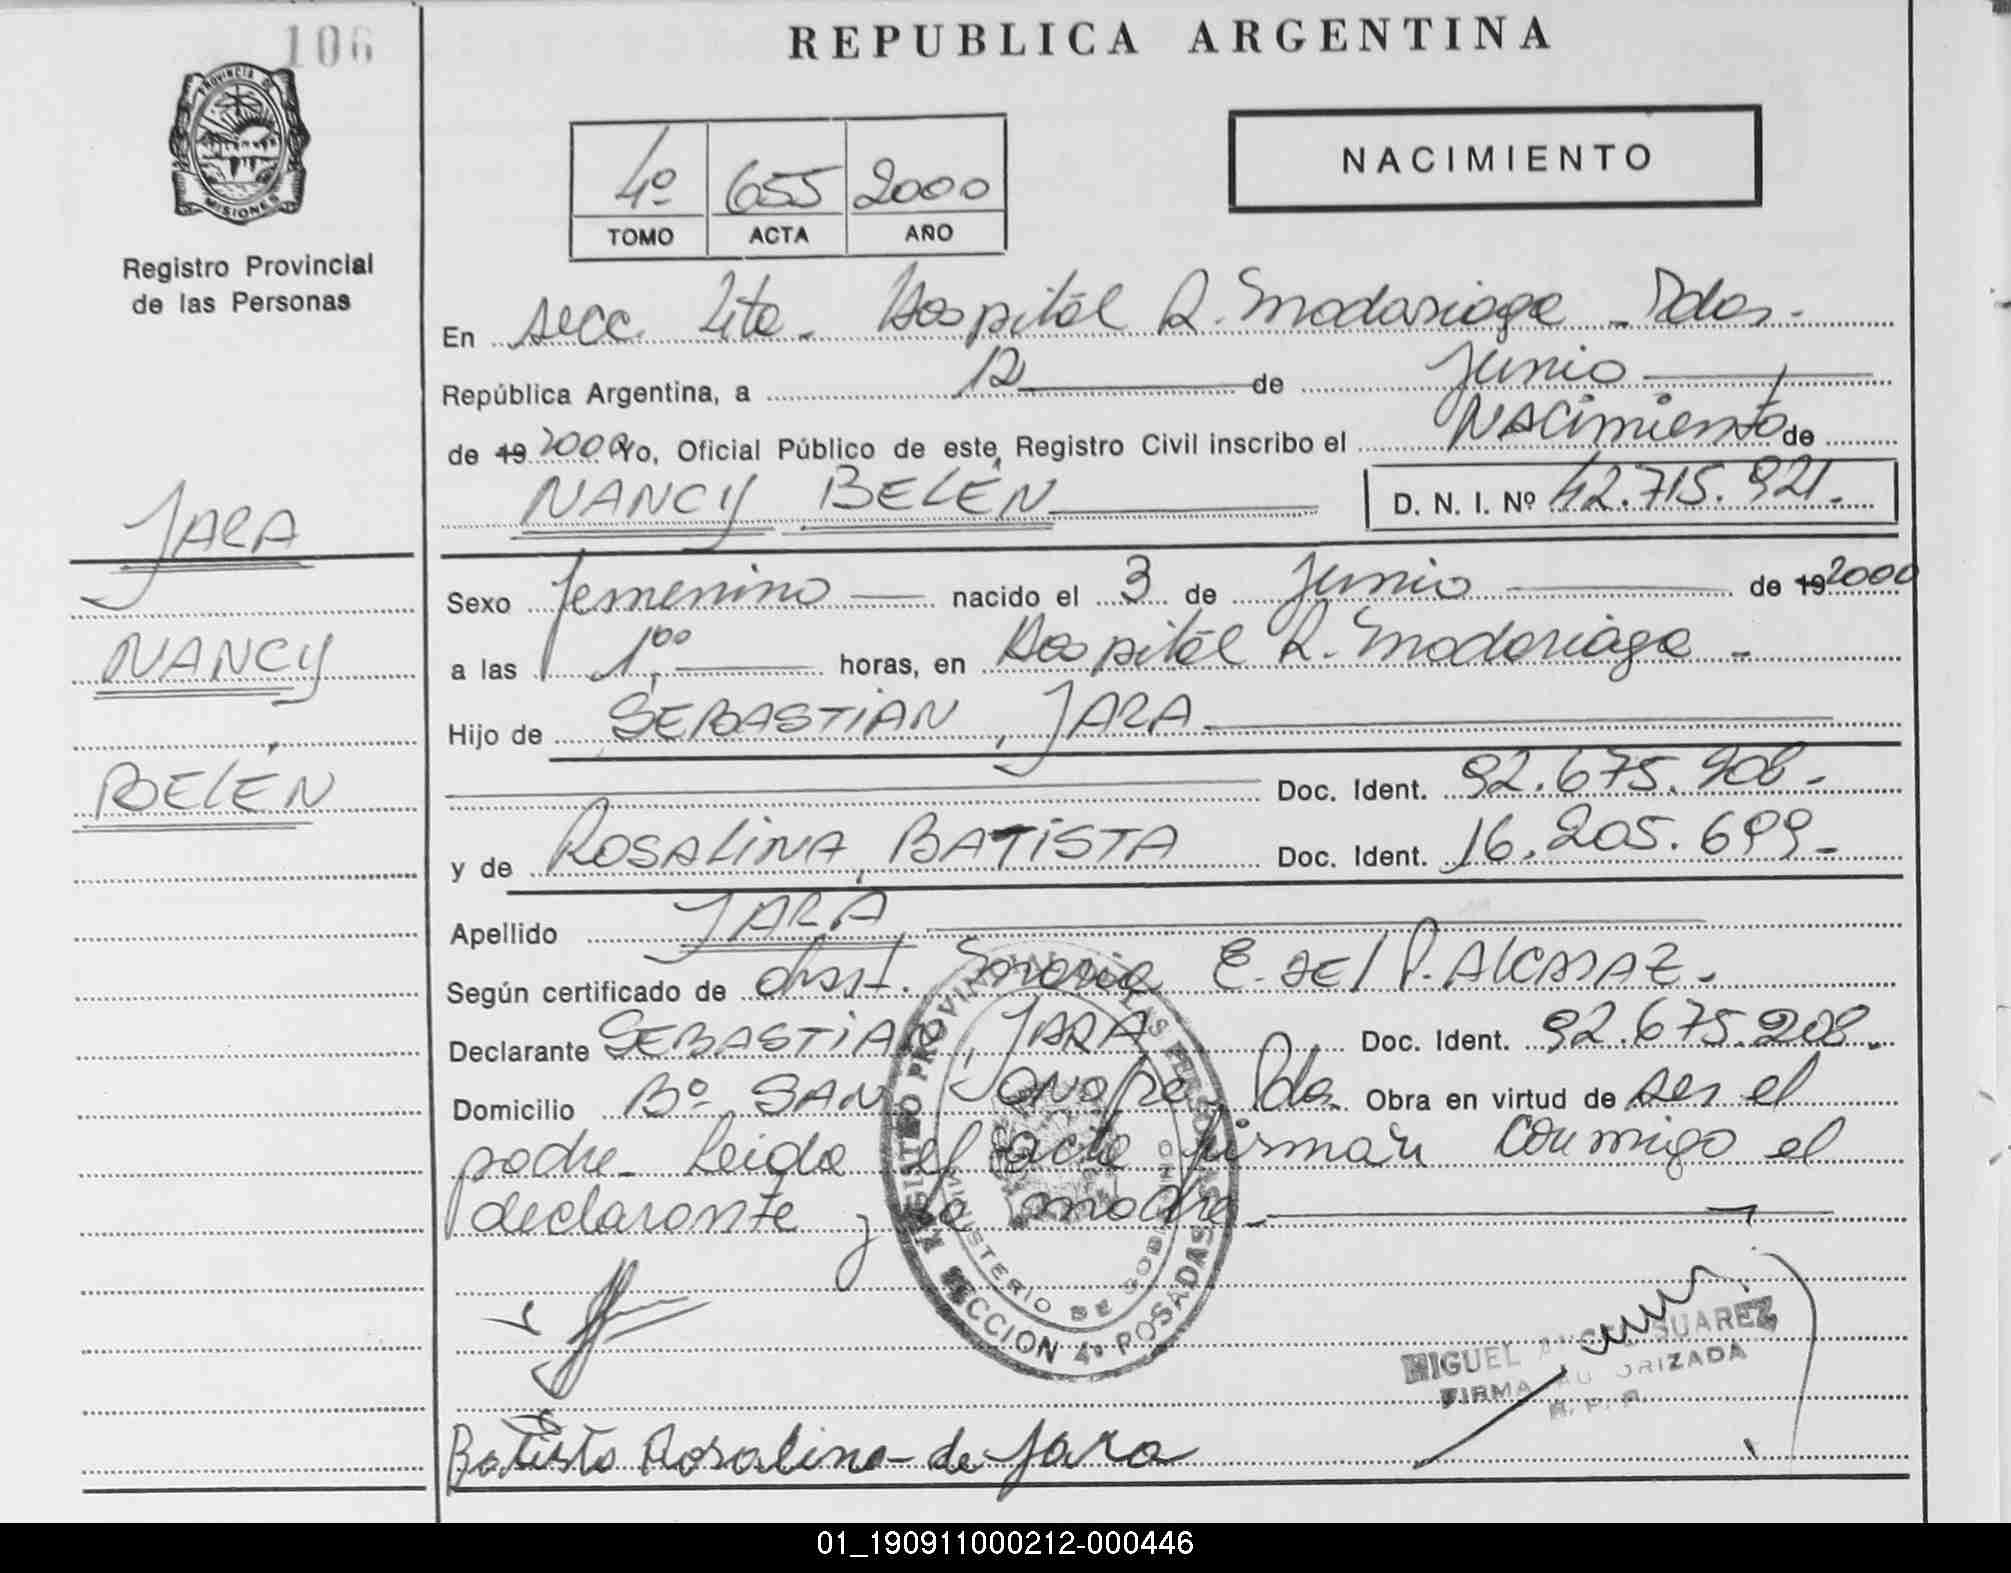 106
REPUBLICA ARGENTINA
PROVINCIA DE MISIONES
Registro Provincial
de las Personas
4º 655 2000
TOMO ACTA AÑO
NACIMIENTO
En secc. 4ta. Hospital R. Madariaga - Pdas.-
República Argentina, a 12 de Junio
de 19 2000 Yo, Oficial Público de este Registro Civil inscribo el NACimiento de
NANCY BELÉN D. N. I. Nº 42.715.921.
JARA
NANCY
BELÉN
Sexo femenino nacido el 3 de Junio de 19 2000
a las 1,00 horas, en Hospital R. Madariaga -
Hijo de SEBASTIAN, JARA
Doc. Ident. 92.675.908.-
y de ROSALINA, BATISTA Doc. Ident. 16.205.699.-
Apellido JARA
Según certificado de obst. E. del P. ALCARAZ.-
Declarante SEBASTIAN, JARA Doc. Ident. 92.675.908.
Domicilio Bº SAN Onofre Pdas. Obra en virtud de ser el
padre. Leida el acta firman conmigo el
declarante y la madre.-
REGISTRO PROVINCIAL DE LAS PERSONAS
MINISTERIO DE GOBIERNO
SECCION 4º POSADAS
MIGUEL SUAREZ
FIRMA AUTORIZADA
R. P. P.
Batista Rosalina de Jara
01_190911000212-000446